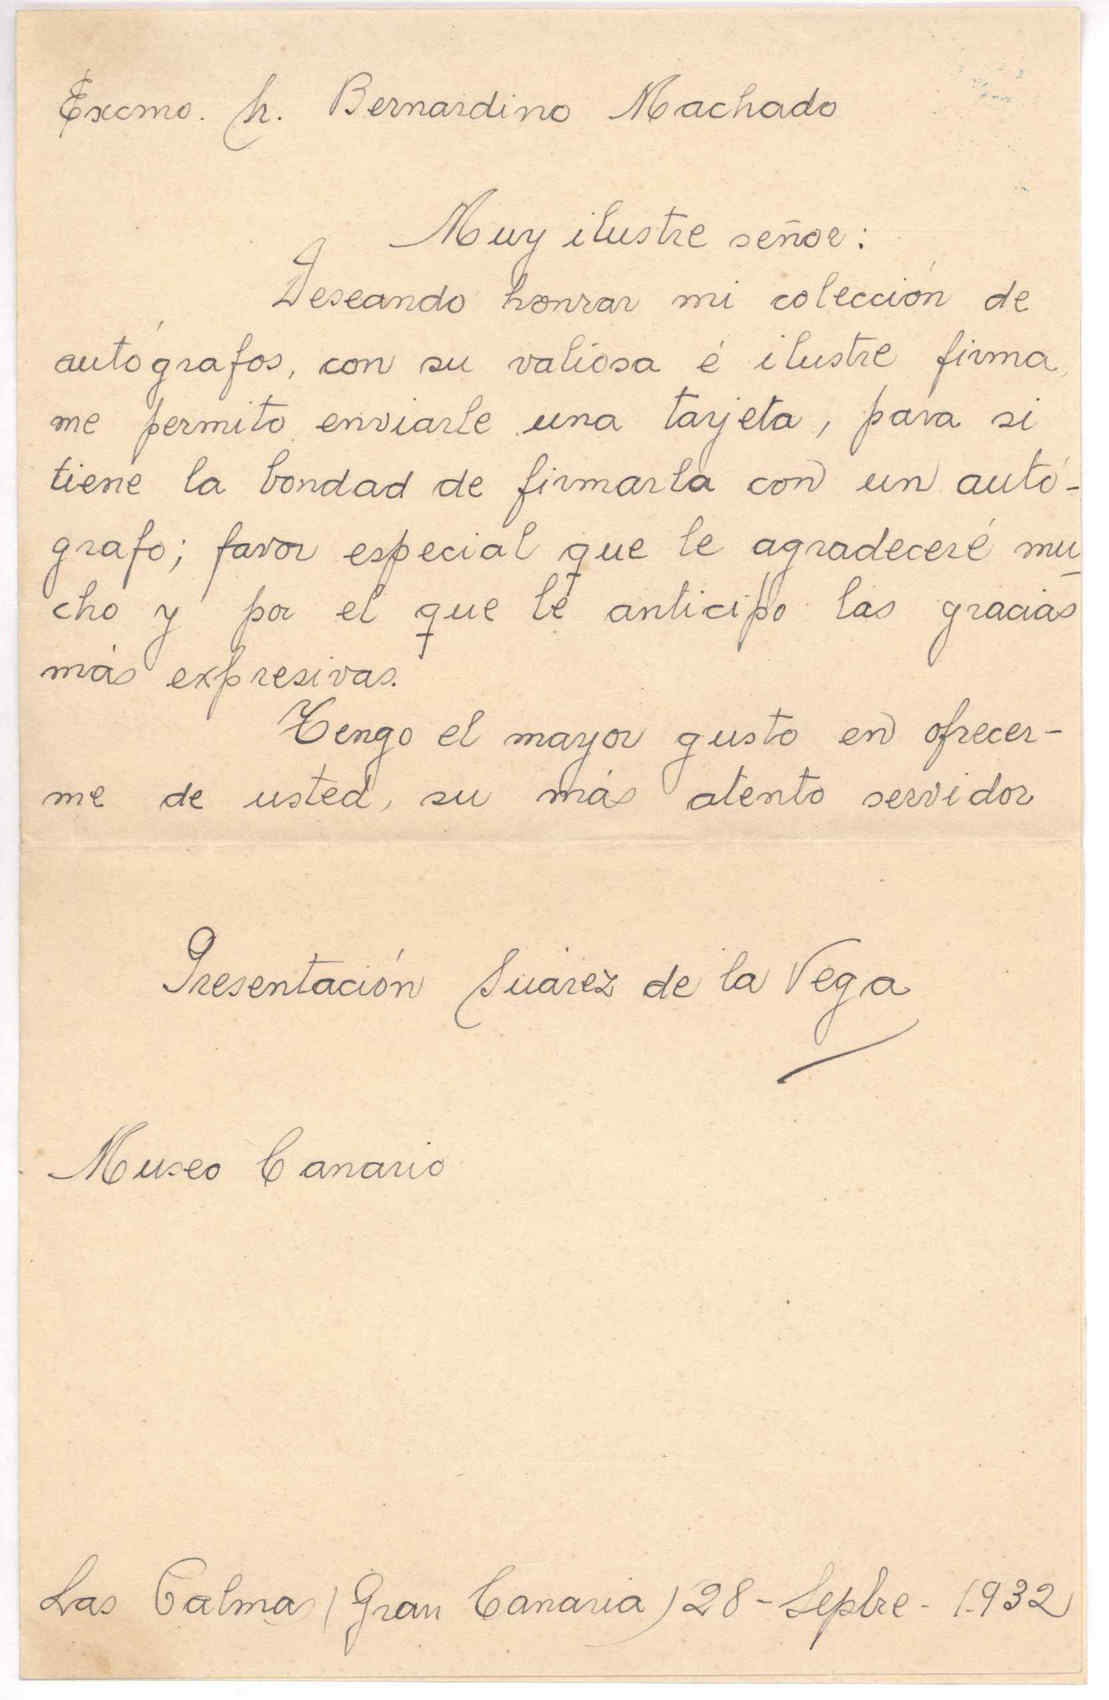 Excmo. Sr. Bernardino Machado
Muy ilustre señor:
Deseando honrar mi colección de
autógrafos, con su valiosa é ilustre firma,
me permito enviarle una tarjeta, para si
tiene la bondad de firmarla con un autó-
grafo; favor especial que le agradeceré mu
cho y por el que le anticipo las gracias
más expresivas.
Tengo el mayor gusto en ofrecer-
me de usted, su más atento servidor
Presentación Suárez de la Vega
Museo Canario
Las Palmas (Gran Canaria) 28 - Sepbre - 1.932